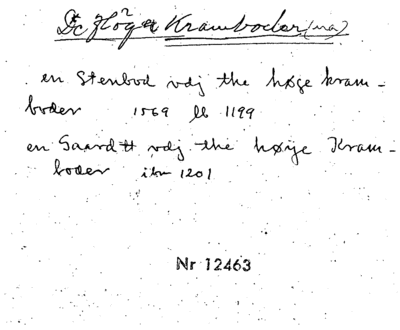 De Höge Kramboder (na)
en Stenbod vdj the høge kram-
boder 1569 lb 1199
en Gaardt vdj the høije Kram-
boder ibm 1201
Nr 12463